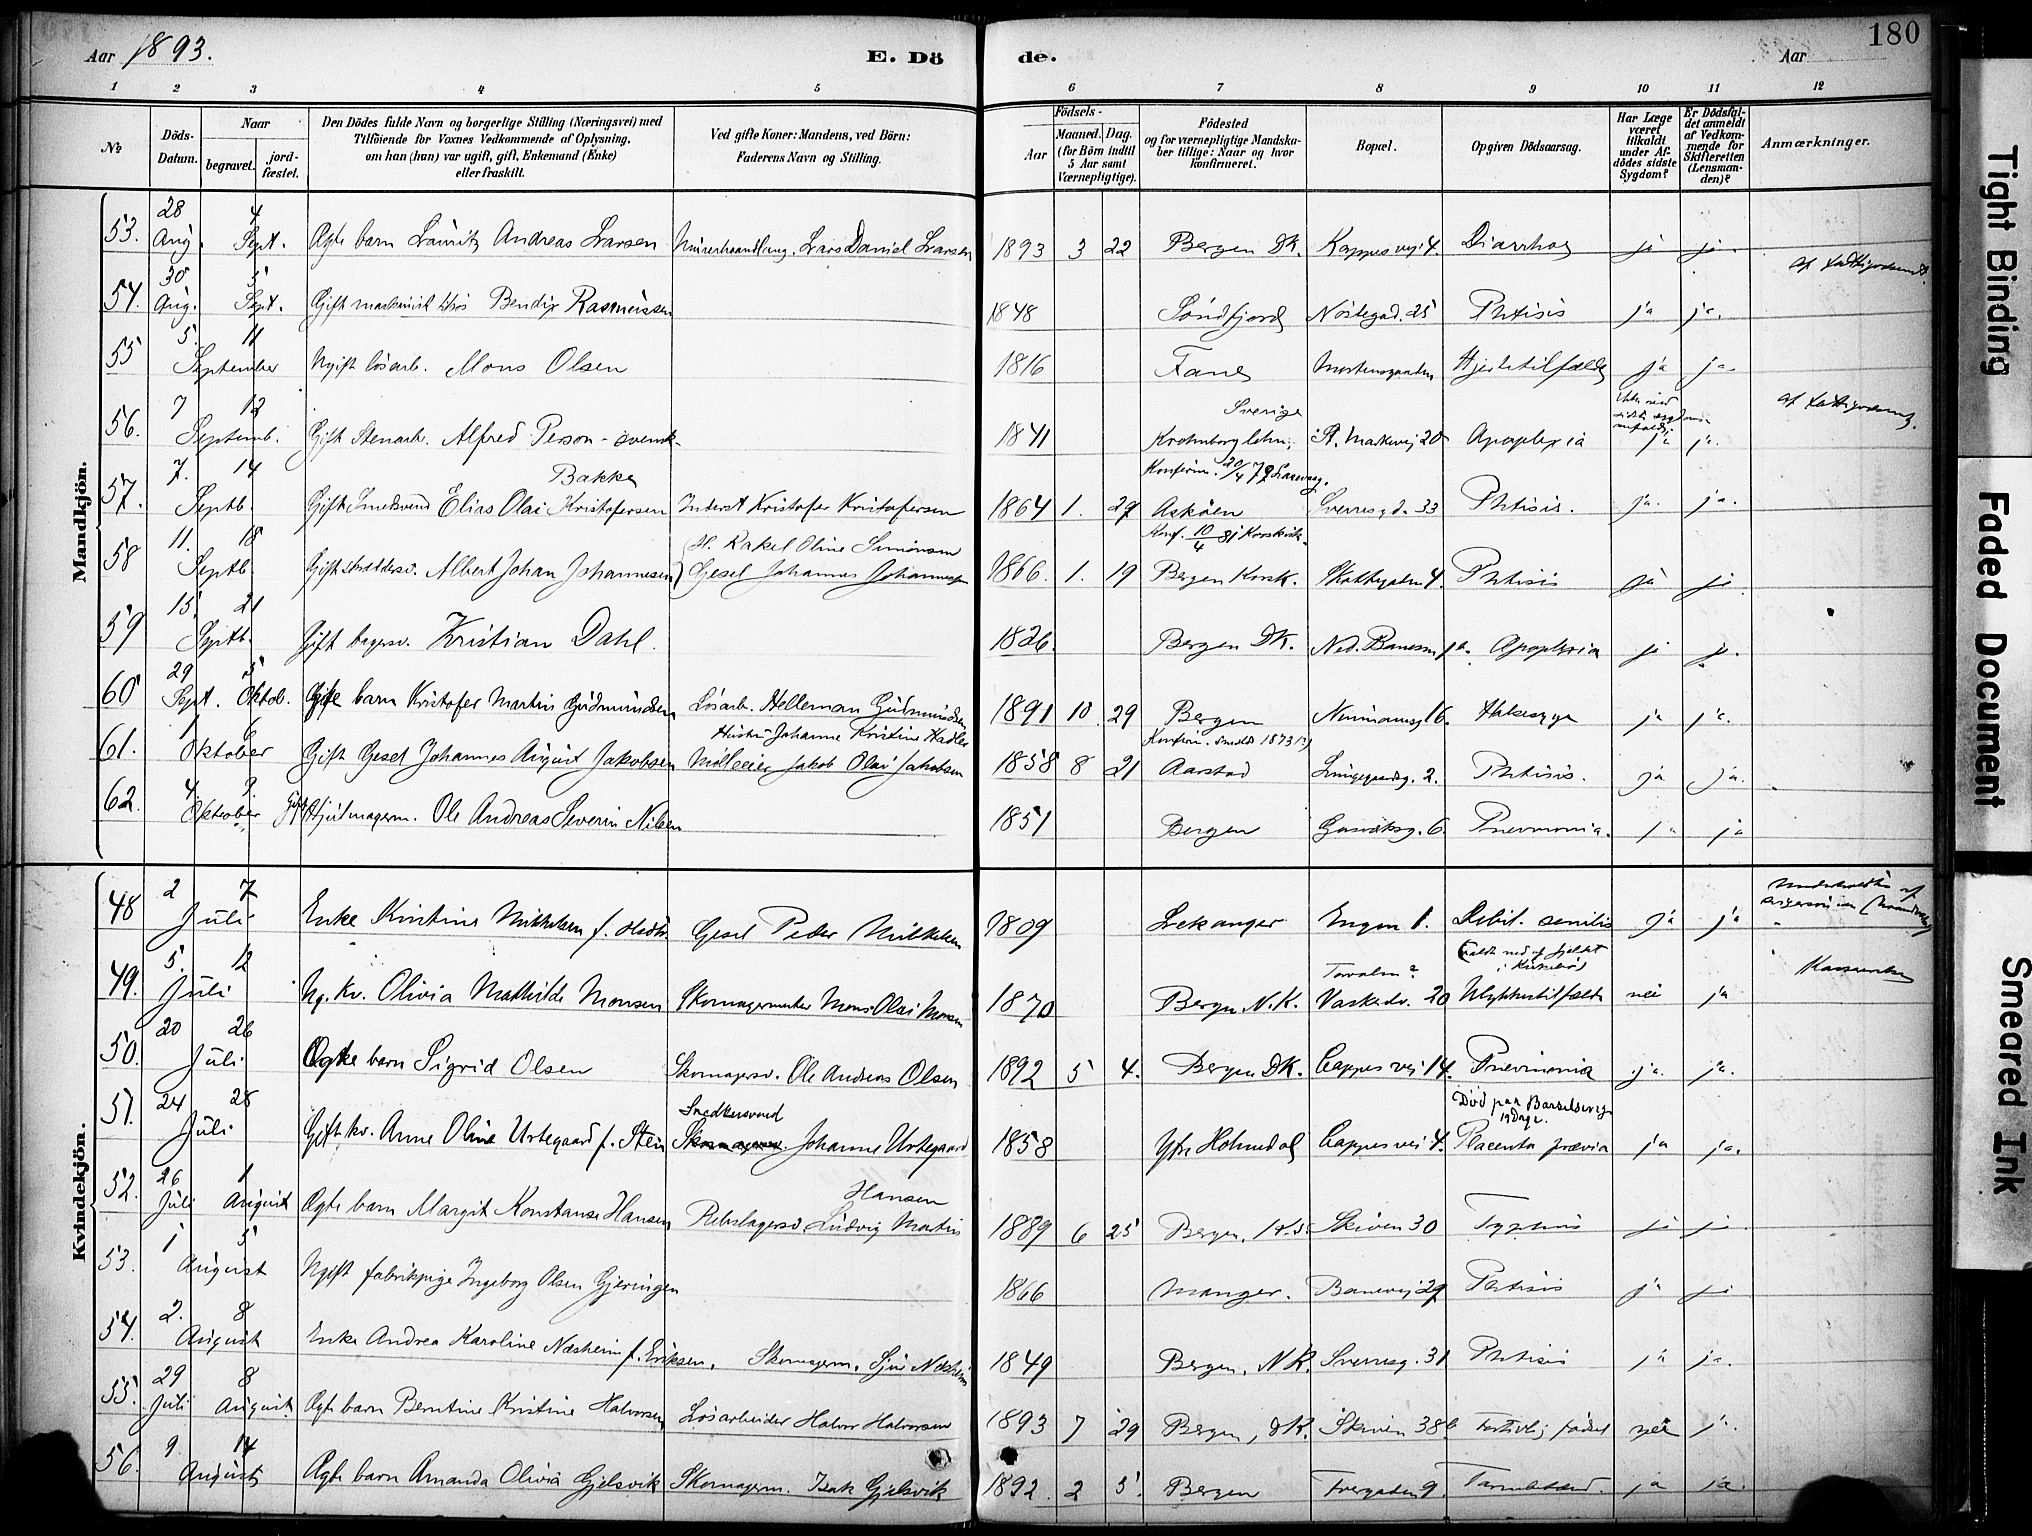 Aar 1893.
E. Dö
de.
Aar
180
1 2 3 4 5 6 7 8 9 10 11 12
No
Döds-Datum.
Naar
begravet.
jord-fæstet.
Den Dödes fulde Navn og borgerlige Stilling (Næringsvei) med
Tilföiende for Voxnes Vedkommende af Oplysning,
om han (hun) var ugift, gift, Enkemand (Enke)
eller fraskilt.
Ved gifte Koner: Mandens, ved Börn:
Faderens Navn og Stilling.
Födsels-
Aar
Maaned. Dag.
(for Börn indtil
5 Aar samt
Værnepligtige).
Födested
og for værnepligtige Mandska-
ber tillige: Naar og hvor
konfirmeret.
Bopæl.
Opgiven Dödsaarsag.
Har Læge
været
tilkaldt
under Af-
dödes sidste
Sygdom?
Er Dödsfal-
det anmeldt
af Vedkom-
mende for
Skifteretten
(Lensman-
den)?
Anmærkninger.
Mandkjön.
53. 28 Aug. 4 Sept. Ægte barn Lauritz Andreas Larsen Lars Daniel Larsen 1893 3 22 Bergen DK. Kappesvej 4. Diarrhoe ja ja
54. 30 Aug. 5 Sept. Gift Bendix Rasmussen 1848 Söndfjord Nöstegad. 25 Phtisis ja ja.
55 5 11 September Ugift lösarb. Mons Olsen 1816 Fane Hjertetilfælde ja ja.
Sverige
56. 7 12 Septemb. Gift Stenarb. Alfred Person - svensk 1841 Kronborg lehn. St. Markevej 20 Apoplexia ja ja.
Bakke
Konfirm. 20/4 79
57. 7. 14 Septb. Gift Smedsvend Elias Olai Kristofersen Inderst Kristofer Kristofersen 1864 1. 29 Asköen Sverresgd. 33 Phtisis. ja. ja.
H. Rakel Oline Simonsen
Konf. 10/4 81 i Korskirk.
58 11. 18 Septb. Gift skræddersv. Albert Johan Johannesen Gesel Johannes Johannesen 1866. 1. 19 Bergen Korsk. Skottegaten 4. Phtisis ja ja
59 15. 21 Septb. Gift bagersv. Kristian Dahl. 1826. Bergen DK. Apoplexia ja ja.
60 29 Sept. 5 Oktob. Ægte barn Kristofer Martin Gudmundsen Lösarb. Helleman Gudmundsen 1891 10 29 Bergen 16. Halsesyge ja ja.
Hustru Johanne Kristine
61. 1 6 Oktober Gift Gesel Johannes August Jakobsen Jakob Olai Jakobsen 1858 8 21 Aarstad Lungegaardsg. 2. Phtisis. ja ja.
62. 4. 9. Oktober Gift Hjulmagerm. Ole Andreas Severin Nilsen 1851 Bergen 6. Pneumonia. ja ja
Kvindekjön.
48 2 7 Juli Enke Kristine Mikkelsen f. Gesel Peder Mikkelsen 1809 Lekanger Engen 1. Debil. senilis ja ja
49. 5. 12 Juli Ug. kv. Olivia Mathilde Monsen Skomagermester Mons Olai Monsen 1870 Bergen N.K. 20 Ulykkestilfælde nei ja
50. 20 26 Juli Ægte barn Sigrid Olsen Skomagersv. Ole Andreas Olsen 1892 5 4. Bergen DK. Cappesvej 14. Pneumonia ja. ja.
Snedkersvend
Död paa Barselseng
51. 24 28 Juli Gift kv. Anne Oline Urtegaard f. Stein Johannes Urtegaard 1858 Ytre Holmedal Cappesvei 4. Placenta prævia ja ja.
Hansen
52. 26 Juli 1 August Ægte barn Margit Konstanse Hansen Rebslagersv. Ludvig Martin 1889 6 25 Bergen, Skiven 30 Typhus ja ja
53. 1 5 August Ugift fabrikpige Ingeborg Olsen Gjeringen 1866 Manger. 29 Phtisis ja ja
54. 2. 8 August Enke Andrea Karoline Næsheim f. Eriksen. Skomagerm. Sjur Næsheim 1849 Bergen, N.K. Sverresg. 31 Phtisis ja ja.
55. 29 Juli 8 August Ægte barn Berntine Kristine Halvorsen Lösarbeider Halvor Halvorsen 1893 7 29 Bergen, DK. Skiven 38b nei ja
56. 9. 14 August Ægte barn Amanda Olivia Gjelsvik Skomagerm. Isak Gjelsvik 1892. 2 5. Bergen 9. ja ja.
Tight Binding
Faded Document
Smeared Ink